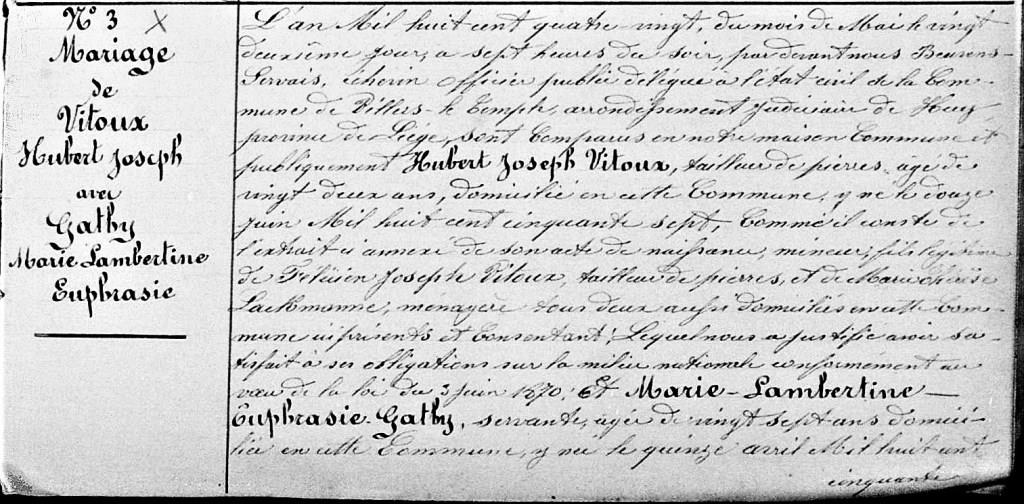 N° 3 X
Mariage
de
Vitoux
Hubert Joseph
avec
Gathy
Marie Lambertine
Euphrasie
L'an Mil huit cent quatre vingt, du mois de Mai le vingt
deuxième jour, à sept heures du soir, par devant nous
Servais, Echevin Officier public délégué à l'état civil de la Com-
mune de Villers-le Temple, arrondissement judiciair de Huy,
province de Liége, sont Comparus en notre maison Commune et
publiquement Hubert Joseph Vitoux, tailleur de pierres, agé de
vingt deux ans, domicilié en cette Commune, y né le douze
juin Mil huit cent cinquante sept, Comme il conste de
l'extrait ci annexé de son acte de naissance, mineur, fils légitime
de Félicien Joseph Vitoux, tailleur de pierres, et de Marie Thérèse
ménagère tous deux aussi domiciliés en cette Com-
mune ici présents et Consentant; Lequel nous a justifié avoir sa-
tisfait à ses obligations sur la milice nationale conformément au
vœu de la loi du 3 juin 1870; Et Marie-Lambertine-
Euphrasie-Gathy, servante, agée de vingt sept ans domici-
liée en cette Commune, y née le quinze avril Mil huit cent
cinquante